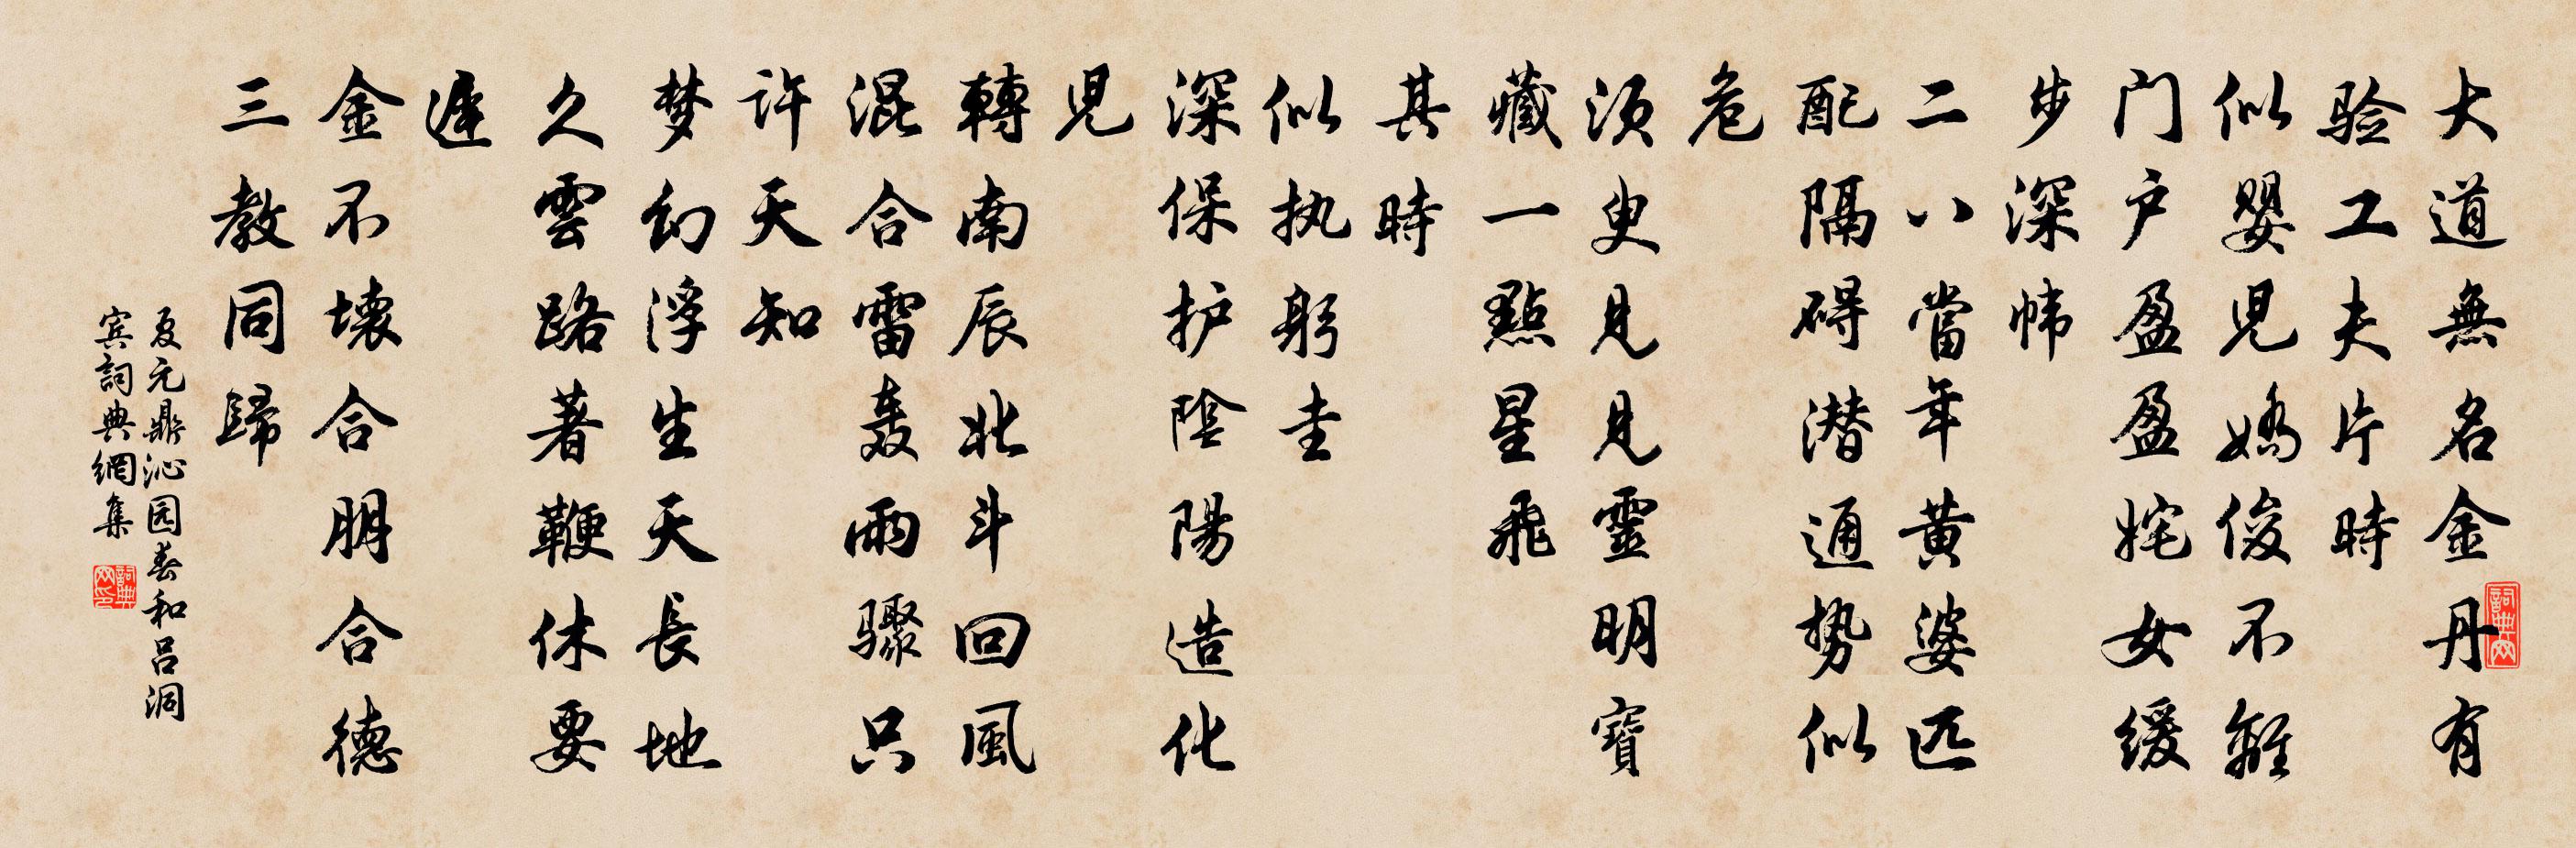 大道無名金丹有
验工夫片時
似婴児嬌俊不離
门户盈盈姹女缓
步深帏
二八當年黄婆匹
配隔碍潜通势似
危
须臾见见靈明寶
藏一點星飛
其時
似执躬圭
深保护陰陽造化
児
轉南辰北斗回風
混合雷轰雨骤只
许天知
梦幻浮生天長地
久雲路著鞭休要
遲
金不壊合朋合德
三教同歸
夏元鼎沁园春和吕洞
宾詞典網集
詞典网
詞典网印